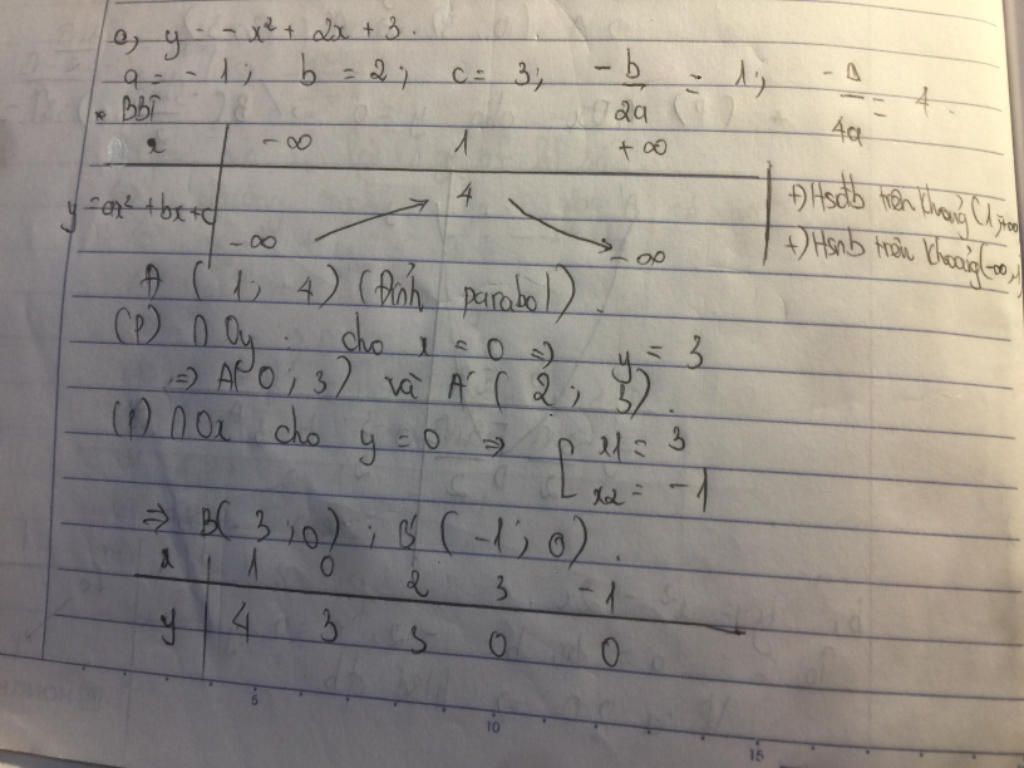 a, y = - x² + 2x + 3.
a = - 1; b = 2; c = 3; -b/2a = 1; -Δ/4a = 4.
• BBT
x -∞ 1 +∞
y = ax² + bx + c -∞ ↗ 4 ↘ -∞
+) Hsđb trên khoảng (1; +∞
+) Hsnb trên khoảng (-∞; 1
A ( 1; 4) (Đỉnh parabol).
(P) ∩ Oy . cho x = 0 => y = 3
=> A( 0 ; 3) và A' ( 2 ; 3).
(P) ∩ Ox cho y = 0 => [ x1 = 3
x2 = -1
=> B( 3 ; 0) ; B' ( -1 ; 0) .
x 1 0 2 3 -1
y 4 3 3 0 0
5 10 15